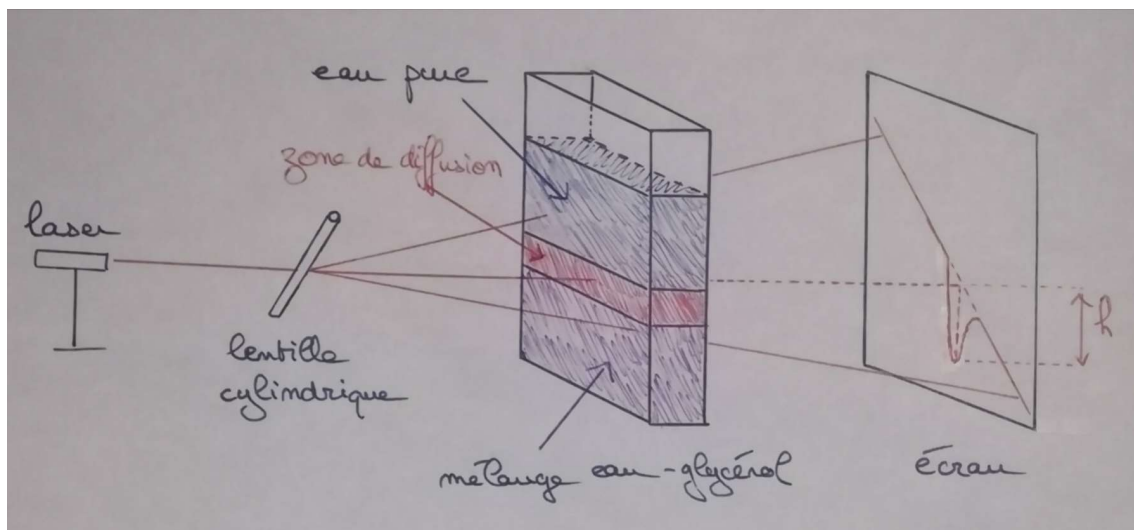 eau pure
zone de diffusion
laser
lentille
cylindrique
h
mélange eau-glycérol
écran